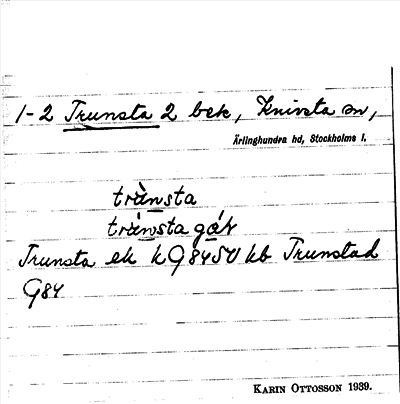 1-2 Trunsta 2 bek, Knivsta sn,
Ärlinghundra hd, Stockholms l.
trànsta
trànsta gá̱r
Trunsta ek k G84SV kb Trunstad
G84
KARIN OTTOSSON 1939.